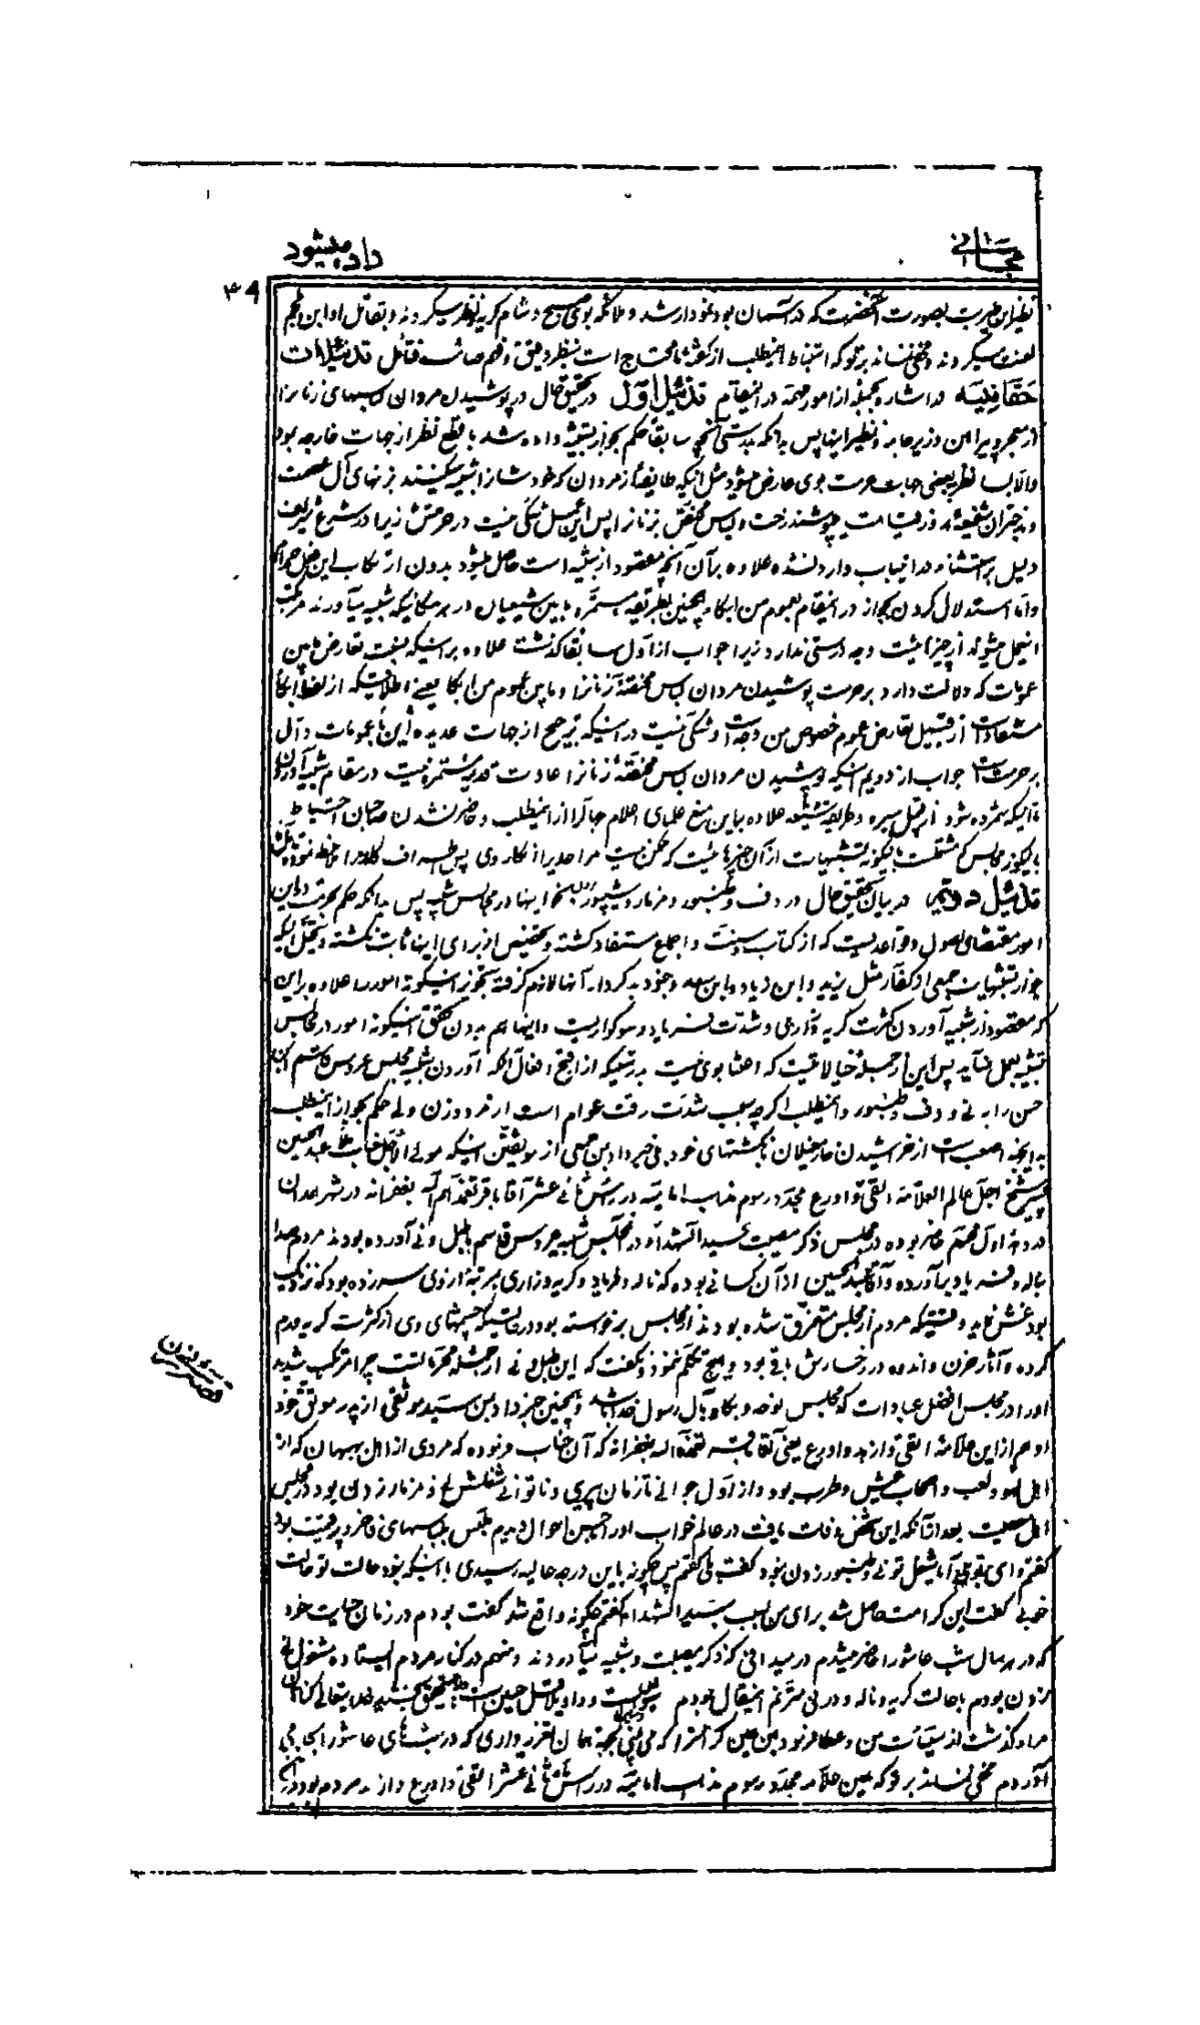 مجانی
داده میشود
۴۹
نظیر این غیرت بصورت آنحضرت که در آسمان بود نمودار شد و ملائکه بوی صبح و شام گریه و نظر میکردند و بقاتل او ابن ملجم
لعنت میکردند و مخفی نماند بر تو که استنباط اینمطلب از گفته ما محتاج است بنظر دقیق و فهم صائب فتأمل تذئیلات
حقانیه در اشاره بجمله از امور مهمه در اینمقام تذئیل اول در تحقیق حال در پوشیدن مردان لباسهای زنانرا
از معجر و پیراهن و زیر جامه و نظیر اینها پس بدانکه بدرستی آنچه سابقا حکم بجواز تشبیه داده شد با قطع نظر از جهات خارجه بود
والا بسا نظر ببعضی جهات حرمت بوی عارض میشود مثل اینکه طایفه از مردان که خودشانرا شبیه میکنند بزنهای آل عصمت
و دختران شفیعه روز قیامت میپوشند رخت و لباس مختص بزنانرا پس این عمل شکی نیست در حرمتش زیرا در شرع شریف
دلیل بر استثناء در اینباب وارد نشده علاوه بر آن آنچه مقصود از شبیه است حاصل میشود بدون ارتکاب این فعل حرام
و اما استدلال کردن بجواز در اینمقام بعموم من ابکاء و همچنین بطریقه مستمره ما بین شیعیان در هر مکانیکه شبیه میآورند مرتکب
اینعمل میشوند از چیزها نیست وجه درستی ندارد زیرا جواب از اول سابقا گذشت علاوه بر اینکه نسبت تعارض ما بین
عمومات که دلالت دارد بر حرمت پوشیدن مردان لباس مختصه زنانرا و ما بین عموم من ابکا یعنی اطلاقیکه از لفظ ابکا
مستفاد است از قبیل تعارض عموم خصوص من وجه است و شکی نیست در اینکه ترجیح از جهات عدیده با این عمومات دال
بر حرمت است جواب از دویم اینکه پوشیدن مردان لباس مختصه زنانرا عادت قدیم مستمره نیست در مقام شبیه آوردن
تا آنیکه شمرده شود از قبیل سیره و طریقه شیعه علاوه باین منع علمای اعلام جمله را از اینمطلب و حاضر نشدن صاحبان احتیاط
تذئیل دویم در بیان تحقیق حال در دف و طنبور و مزمار و شیپور و نحو اینها در مجالس شبیه پس بدانکه حکم بحرمت در این
امور مقتضای اصول و قواعدیست که از کتاب و سنت و اجماع مستفاد گشته و تخصیص از برای اینها ثابت نگشته و تخیل اینکه
جواز تشبیهات جمعی از کفار مثل یزید و ابن زیاد و ابن سعد و جنود بد کردار آنها لازم گرفته تجویز اینگونه امور را علاوه بر این
که مقصود از شبیه آوردن کثرت گریه و زاری و شدت فریاد و سوگواریست و اینها هم بدون تحقق اینگونه امور در مجالس
تشبیه بعمل نیاید پس این از جمله خیالاتیست که اعتنا بوی نیست بدرستیکه از اقبح افعال آنکه آوردن شبیه مجلس عروس قاسم ابن
حسن را به نی و دف و طنبور و اینمطلب اگر چه سبب شدت رقت عوام است از مرد و زن ولی حکم بجواز اینمطلب
شیخ اجل عالم العلامه اتقی و اورع مجدد رسوم مذهب امامیه در رأس مائه ثانی عشر آقا باقر تغمده الله بغفرانه در شهر همدان
در دهه اول محرم حاضر بوده در مجلس ذکر مصیبت سید الشهداء و در آن مجلس شبیه عروس قاسم با طبل و نی آورده بودند مردم صدا
بناله و فریاد برآورده و آقا عبد الحسین از آن کسانی بوده که ناله و فریاد و گریه و زاری بمرتبه از وی سر زده بود که نزدیک
بود غش نماید وقتیکه مردم از مجلس متفرق شده بودند از مجلس برخواسته بود در حالتیکه چشمهای وی از کثرت گریه ورم
کرده و آثار حزن و اندوه در رخسارش باقی بود و هیچ تکلم ننمود و گفت که این طبل و نی از جمله محرماتست چرا مرتکب شدید
او را در مجلس افضل عبادات که مجلس نوحه و بکا و بآل رسول خدا باشد و همچنین خبر داد بمن سید موثقی از پدر موثق خود
او هم از این علامه اتقی و ازهد و اورع یعنی آقا باقر تغمده الله بغفرانه که آن جناب فرموده که مردی از اهل بهبهان که از
اهل لهو و لعب و اصحاب عیش و طرب بود و از اول جوانی تا زمان پیری و ناتوانی شغلش نی و مزمار زدن بود در مجلس
اهل معصیت بعد از آنکه این شخص وفات یافت در عالم خواب او را در احسن احوال دیدم ملبس بلباسهای فاخر و پر قیمت بود
گفتم وای بر تو آیا شغل تو نی و طنبور زدن نبود گفت بلی گفتم پس چگونه باین درجه عالیه رسیدی با اینکه نبود حالت تو حالت
خوبی گفت این کرامت حاصل شد برای من بسبب سید الشهداء گفتم چگونه واقع شد گفت بودم در زمان حیات خود
که در هر سال شب عاشورا حاضر میشدم در میدانی که ذکر مصیبت و شبیه میآوردند و منهم در کنار مردم ایستاده مشغول نی
زدن بودم با حالت گریه و ناله و در نی مترنم اینمقال بودم
مرا و گذشت از سیئات من و عطا فرمود بمن این کرامترا که می بینی بجهة همان تعزیه داری که در شبهای عاشورا بجا می
آوردم مخفی نماند بر تو که همین علامه مجدد رسوم مذهب امامیه در رأس مائه ثانی عشر اتقی و اورع و ازهد مردم بود در آن